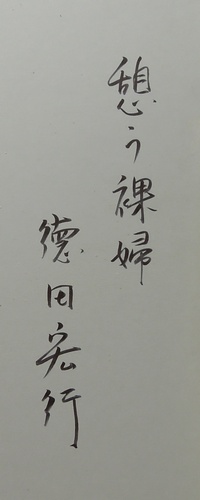 憩う裸婦
德田宏行